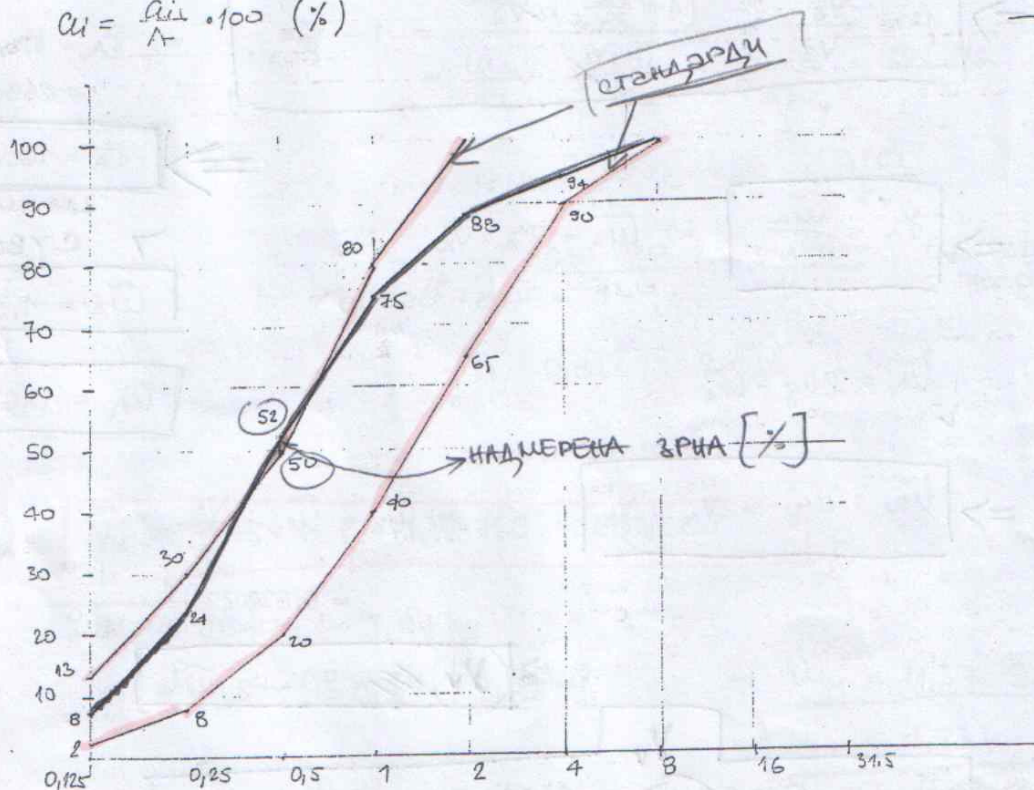 ai = aii / A · 100 (%)
стандарди
100
90
80
70
60
50
40
30
20
13
10
8
2
80
75
88
94
90
65
52
50
НАДМЕРЕНА ЗРНА [%]
40
30
24
20
8
0,125 0,25 0,5 1 2 4 8 16 31.5